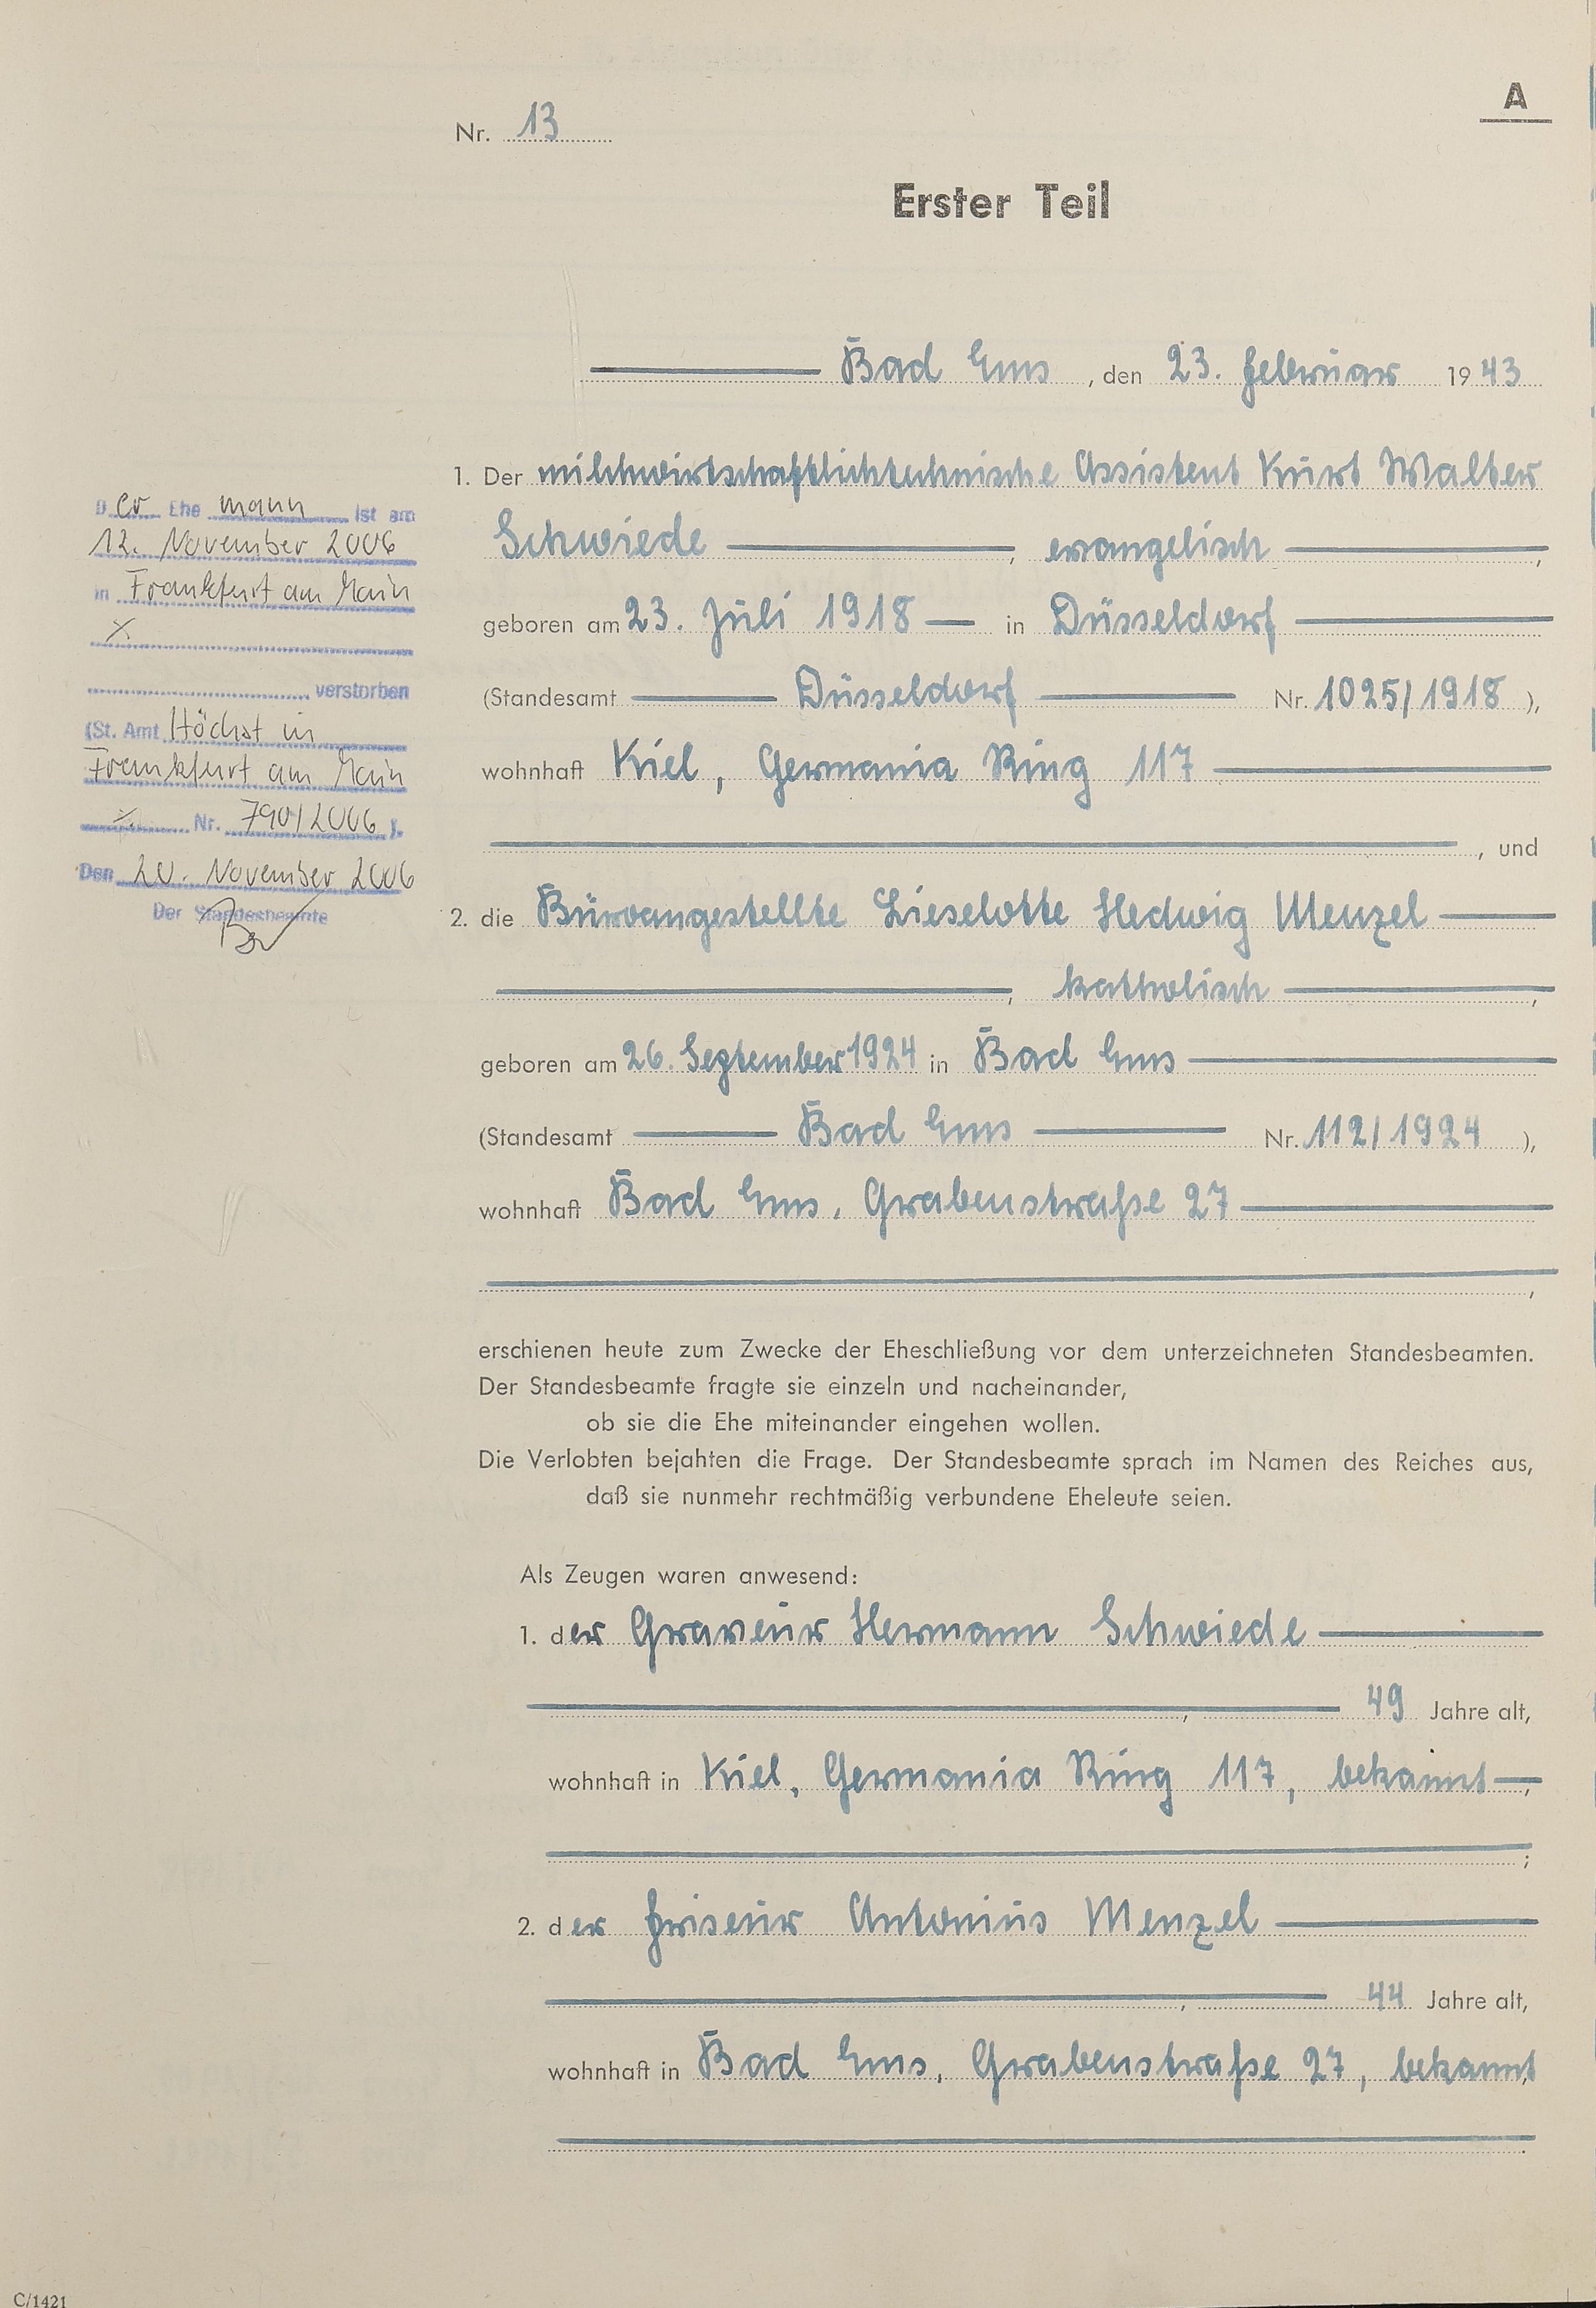 A
Nr. 13
Erster Teil
Bad Ems, den 23. Februar 1943
1. Der milchwirtschaftlichtechnische Assistent Kurt Walter
Schwiede, evangelisch,
geboren am 23. Juli 1918 in Düsseldorf
(Standesamt Düsseldorf Nr. 1025/1918),
wohnhaft Kiel, Germania Ring 117
, und
2. die Büroangestellte Lieselotte Hedwig Menzel
, katholisch,
geboren am 26. September 1924 in Bad Ems
(Standesamt Bad Ems Nr. 112/1924),
wohnhaft Bad Ems, Grabenstraße 27
,
erschienen heute zum Zwecke der Eheschließung vor dem unterzeichneten Standesbeamten.
Der Standesbeamte fragte sie einzeln und nacheinander,
ob sie die Ehe miteinander eingehen wollen.
Die Verlobten bejahten die Frage. Der Standesbeamte sprach im Namen des Reiches aus,
daß sie nunmehr rechtmäßig verbundene Eheleute seien.
Als Zeugen waren anwesend:
1. der Graveur Hermann Schwiede
, 49 Jahre alt,
wohnhaft in Kiel, Germania Ring 117, bekannt,
;
2. der Friseur Antonius Menzel
, 44 Jahre alt,
wohnhaft in Bad Ems, Grabenstraße 27, bekannt
.
Der Ehemann ist am
12. November 2006
in Frankfurt am Main
./.
verstorben
(St. Amt Höchst in
Frankfurt am Main
./. Nr. 790/2006).
Den 20. November 2006
Der Standesbeamte
C/1421